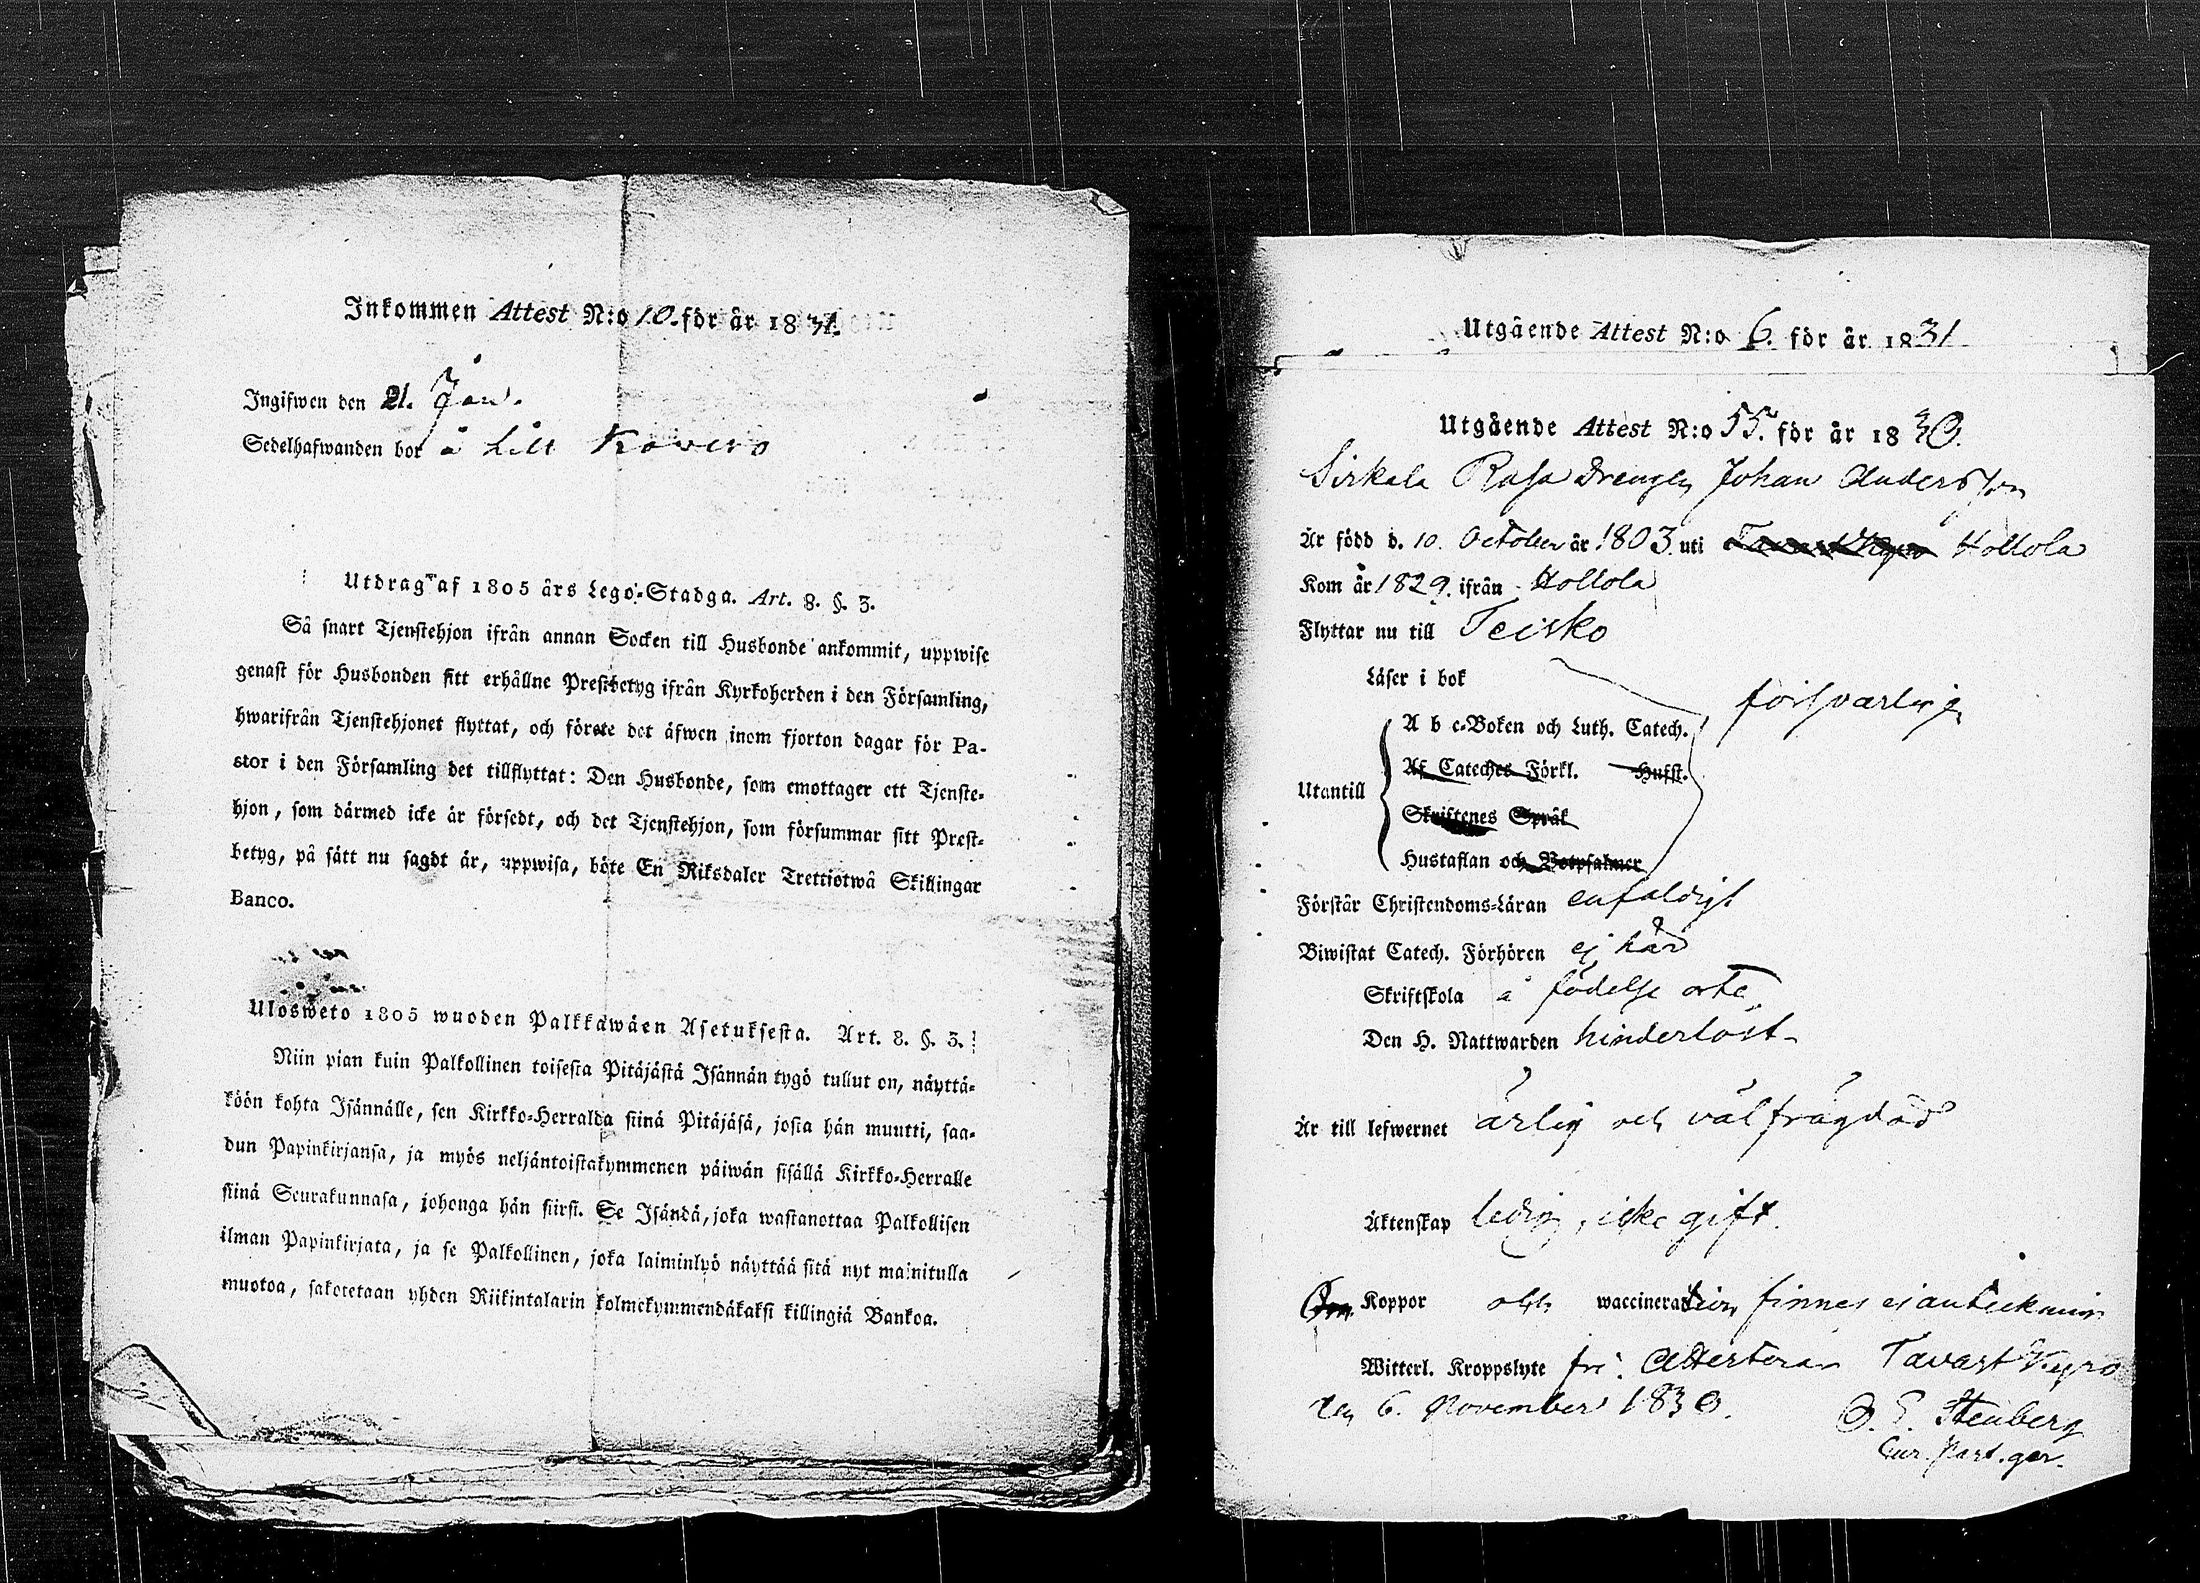 Inkommen Attest N:o 10. för år 1831.
Ingifwen den 21. Jan.
Sedelhafwanden bor å Lill Kovero
Utdrag af 1805 års Lego-Stadga. Art. 8. §. 3.
Så snart Tjenstehjon ifrån annan Socken till Husbonde ankommit, uppwise
genast för Husbonden sitt erhållne Prestbetyg ifrån Kyrkoherden i den Församling,
hwarifrån Tjenstehjonet flyttat, och förete det äfwen inom fjorton dagar för Pa-
stor i den Församling det tillflyttat: Den Husbonde, som emottager ett Tjenste-
hjon, som därmed icke är försedt, och det Tjenstehjon, som försummar sitt Prest-
betyg, på sätt nu sagdt är, uppwisa, böte En Riksdaler Trettiotwå Skillingar
Banco.
Ulosweto 1805 wuoden Palkkawäen Asetuksesta. Art. 8. §. 3.
Niin pian kuin Palkollinen toisesta Pitäjästä Isännän tygö tullut on, näyttä-
köön kohta Isännälle, sen Kirkko-Herralda siinä Pitäjäsä, josta hän muutti, saa-
dun Papinkirjansa, ja myös neljäntoistakymmenen päiwän sisällä Kirkko-Herralle
siinä Seurakunnasa, johonga hän siirsi. Se Isändä, joka wastanottaa Palkollisen
ilman Papinkirjata, ja se Palkollinen, joka laiminlyö näyttää sitä nyt mainitulla
muotoa, sakotetaan yhden Riikintalarin kolmekymmendäkaksi killingiä Bankoa.
Utgående Attest N:o 6. för år 1831
Utgående Attest N:o 55. för år 1830.
Sirkala Rasa Drengen Johan Andersson
Är född d. 10. October år 1803 uti Tavastkyro Hollola
Kom år 1829. ifrån Hollola
Flyttar nu till Teisko
Läser i bok
försvarligen
A b c-Boken och Luth. Catech.
Af Cateches Förkl. Hufst.
Utantill
Skriftenes Språk
Hustaflan och Botpsalmer
Förstår Christendoms-Läran enfaldigt
Biwistat Catech. Förhören ej här
Skriftskola å födelse orten
Den H. Nattwarden hinderlöst
Är till lefwernet ärlig och välfrägdad
Äktenskap ledig, icke gift.
Om Koppor och waccineration finnes ej anteckning
Witterl. Kroppslyte fri. Attesterar Tavast Kyro
den 6. November 1830.
O. E. Stenberg
Cur. Past. ger.